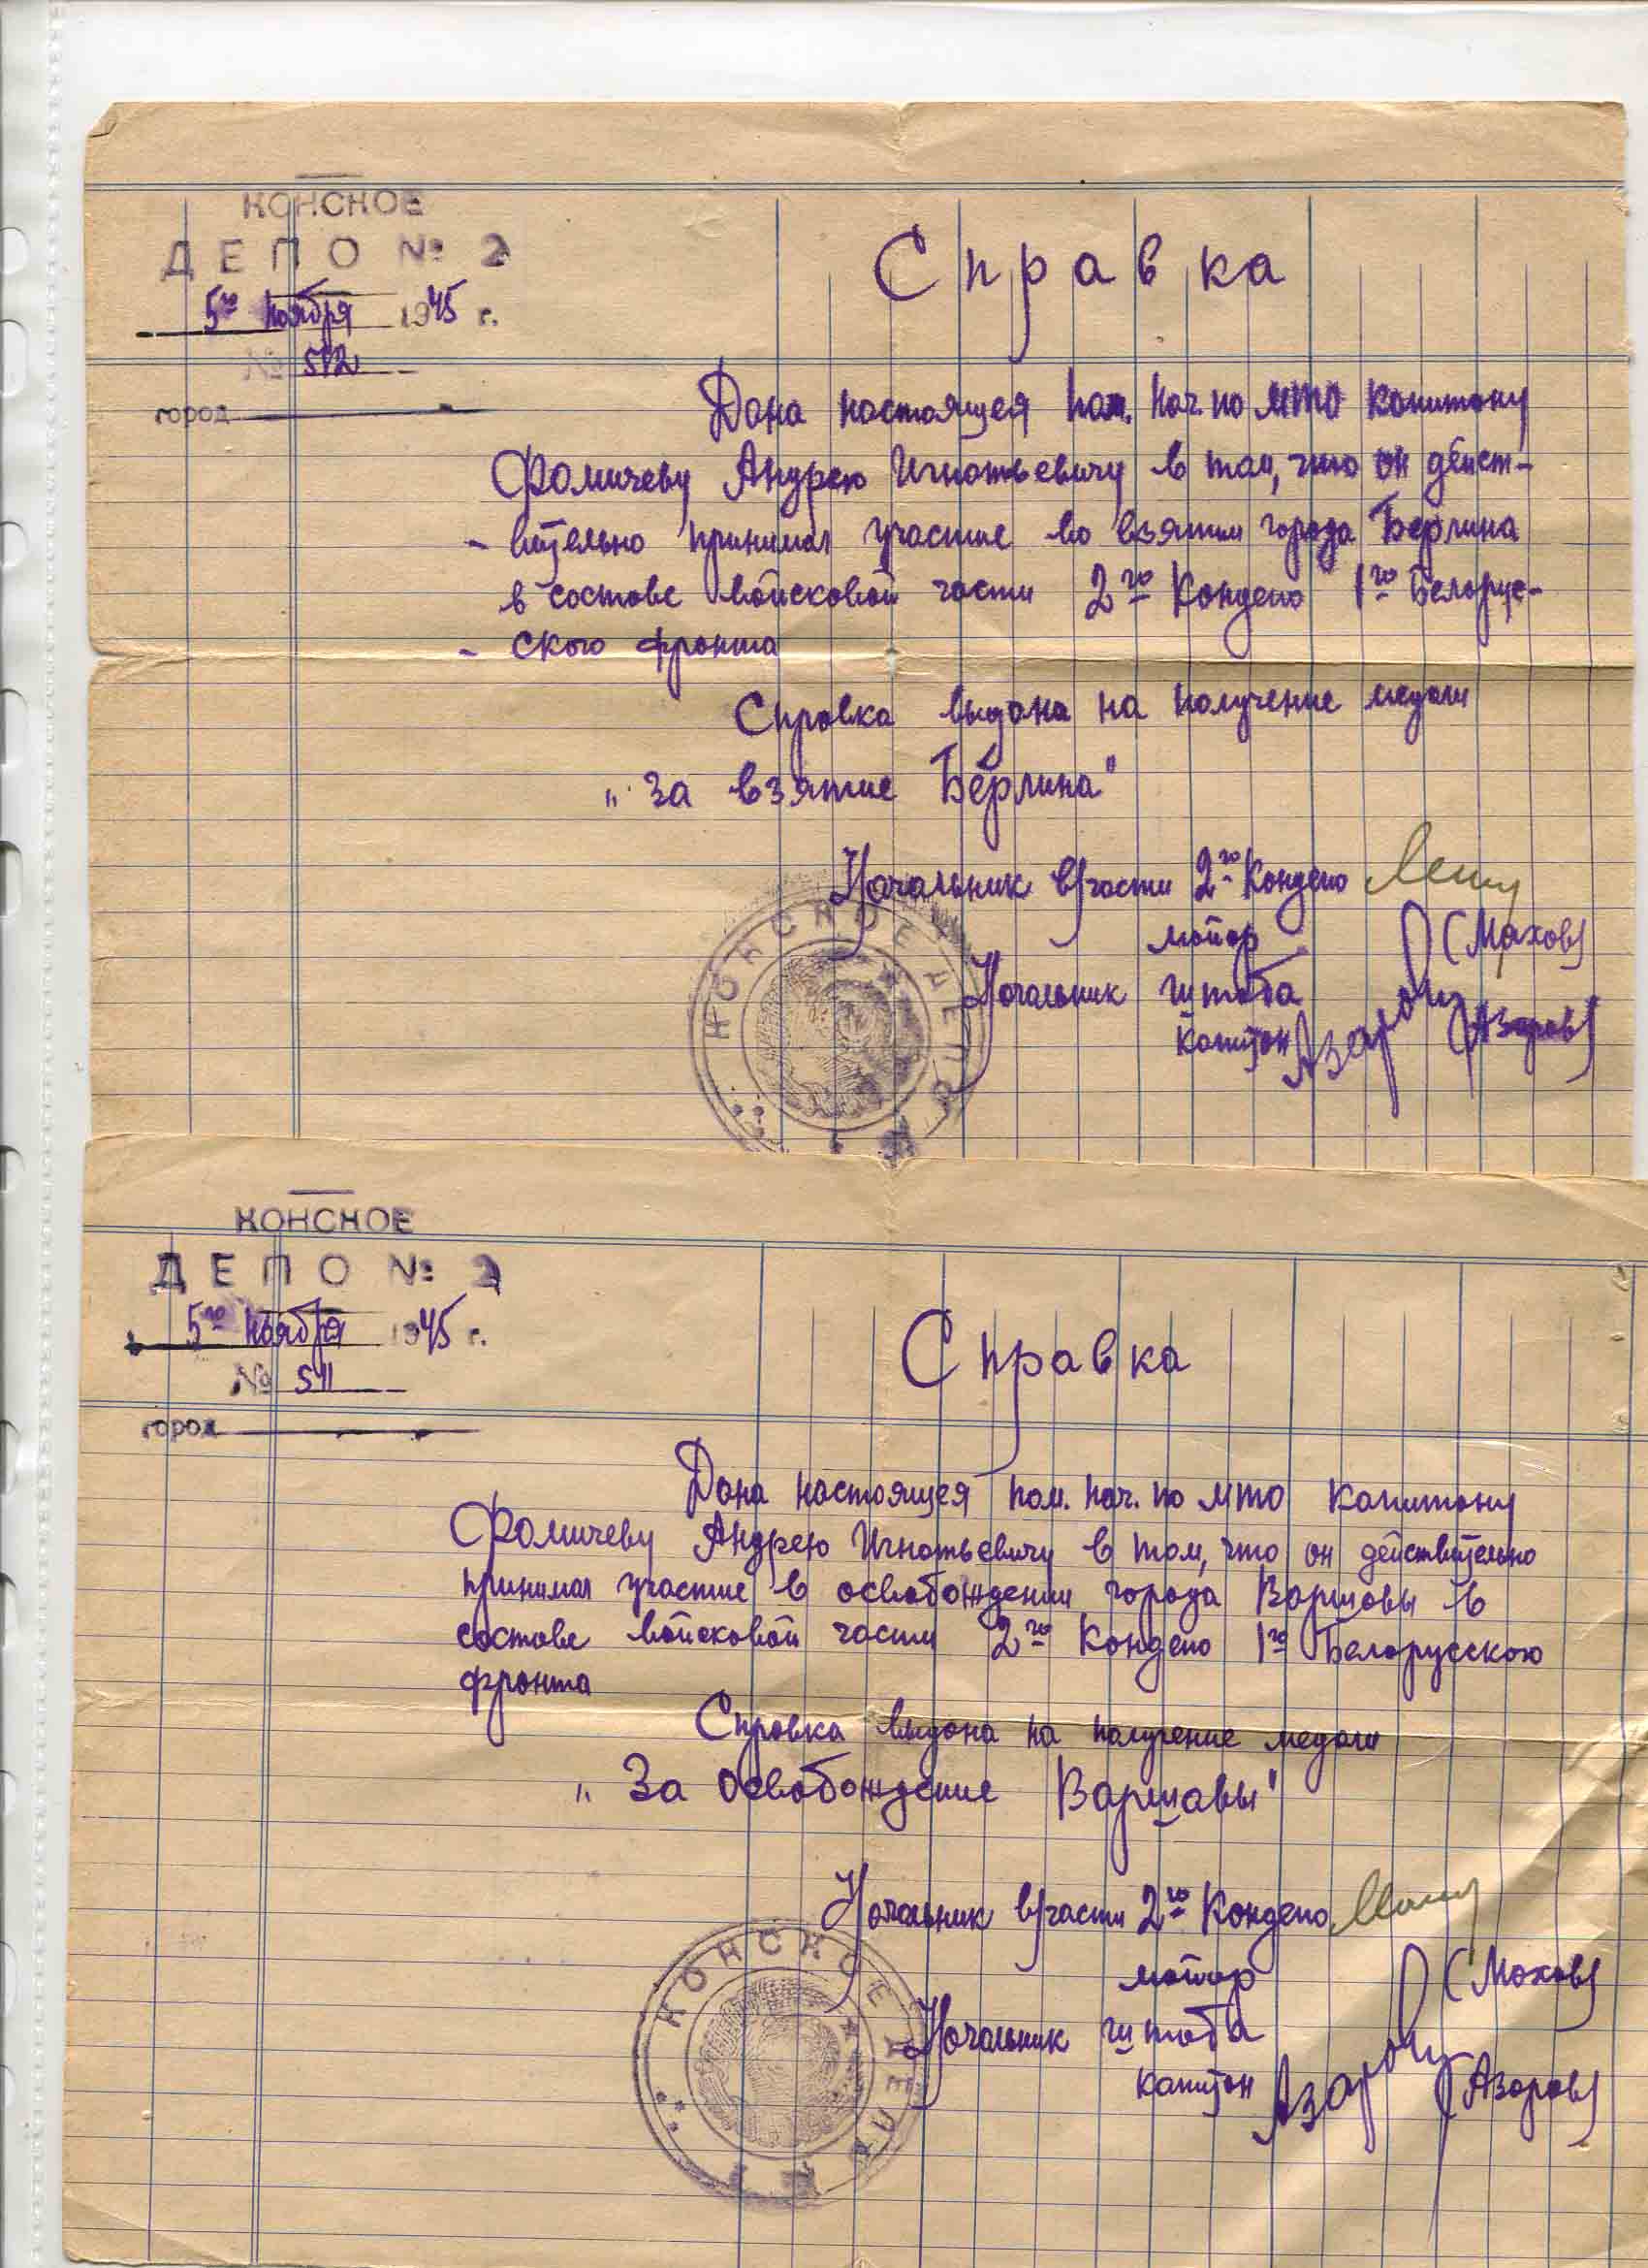 КОНСКОЕ
ДЕПО № 2
5го ноября 1945 г.
№ 512
город
Справка
Дана настоящея пом. нач. по МТО капитану
Фомичеву Андрею Игнатьевичу в том, что он дейст-
- вительно принимал участие во взятии города Берлина
в составе войсковой части 2го Кондепо 1го Белорус-
- ского фронта
Справка выдана на получение медали
„За взятие Берлина"
Начальник в/части 2го Кондепо
майор (Махов)
Начальник штаба
капитан Азаров (Азаров)
КОНСКОЕ ДЕПО
КОНСКОЕ
ДЕПО № 2
5го ноября 1945 г.
№ 511
город
Справка
Дана настоящея пом. нач. по МТО капитану
Фомичеву Андрею Игнатьевичу в том, что он действительно
принимал участие в освобождении города Варшавы в
составе войсковой части 2го Кондепо 1го Белорусского
фронта
Справка выдана на получение медали
„За Освобождение Варшавы"
Начальник в/части 2го Кондепо
майор (Махов)
Начальник штаба
капитан Азаров (Азаров)
КОНСКОЕ ДЕПО